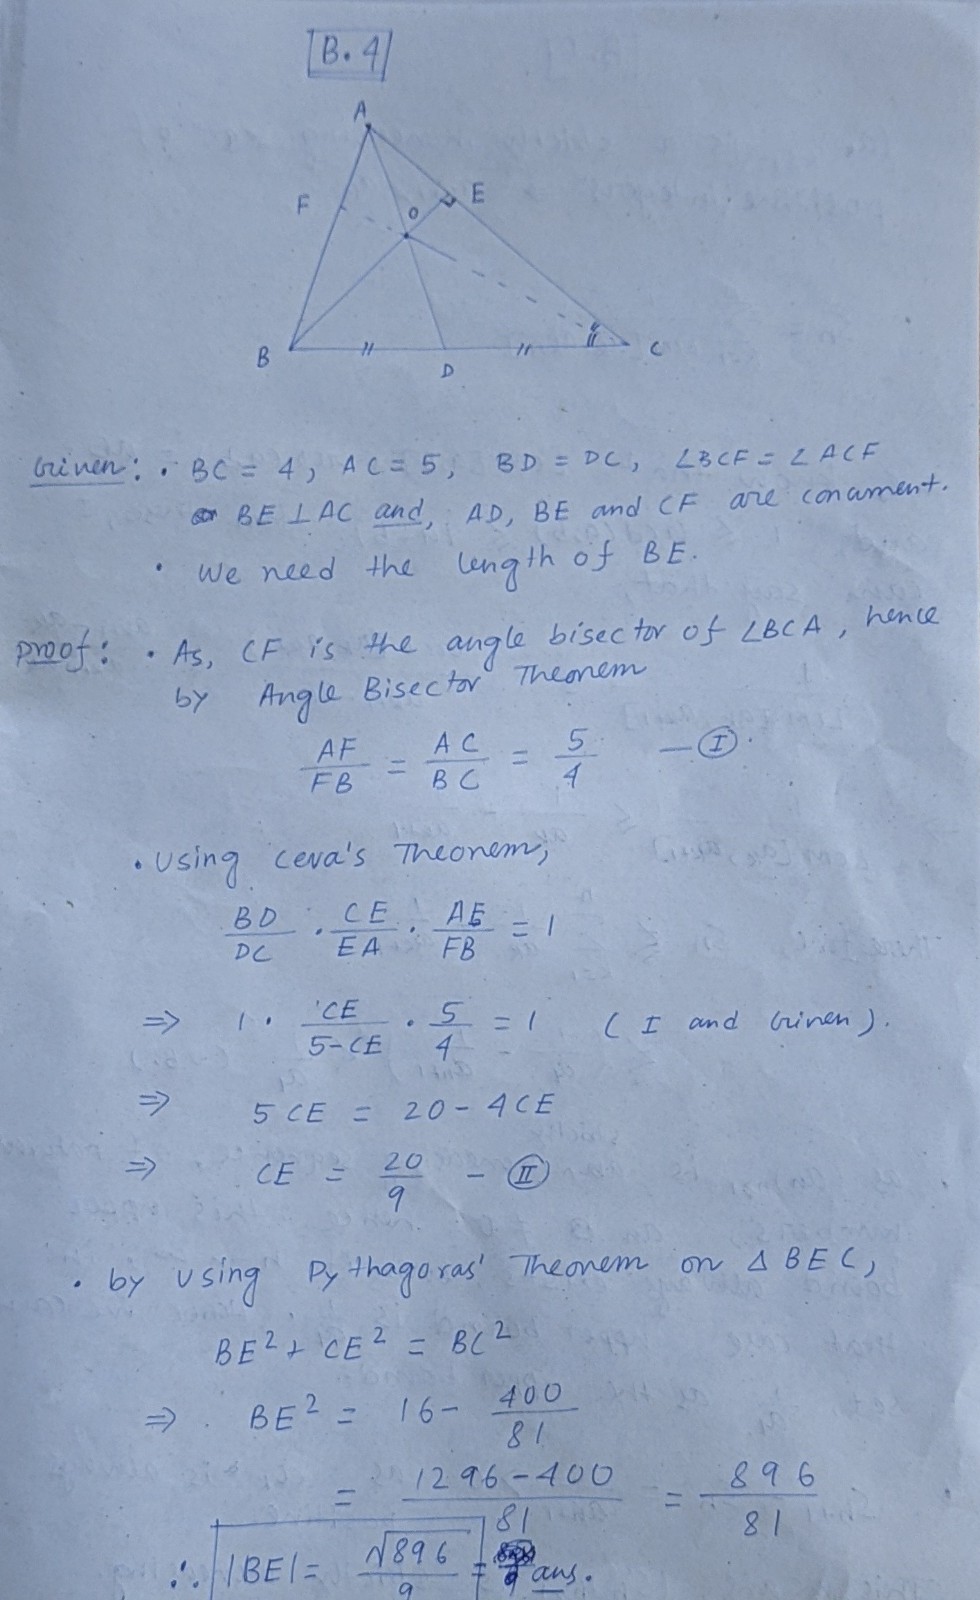 B.4
A
F
O
E
B
D
C
Given: • BC = 4, AC = 5, BD = DC, ∠BCF = ∠ACF
BE ⊥ AC and, AD, BE and CF are concurrent.
• We need the length of BE.
Proof: • As, CF is the angle bisector of ∠BCA, hence
by Angle Bisector Theorem
AF/FB = AC/BC = 5/4 — (I).
• Using Ceva's Theorem,
BD/DC · CE/EA · AF/FB = 1
⇒ 1 · CE/5-CE · 5/4 = 1 (I and Given).
⇒ 5CE = 20 - 4CE
⇒ CE = 20/9 - (II)
• by using Pythagoras' Theorem on Δ BEC,
BE² + CE² = BC²
⇒ BE² = 16 - 400/81
= 1296-400/81 = 896/81
∴ |BE| = √896/9 = ans.